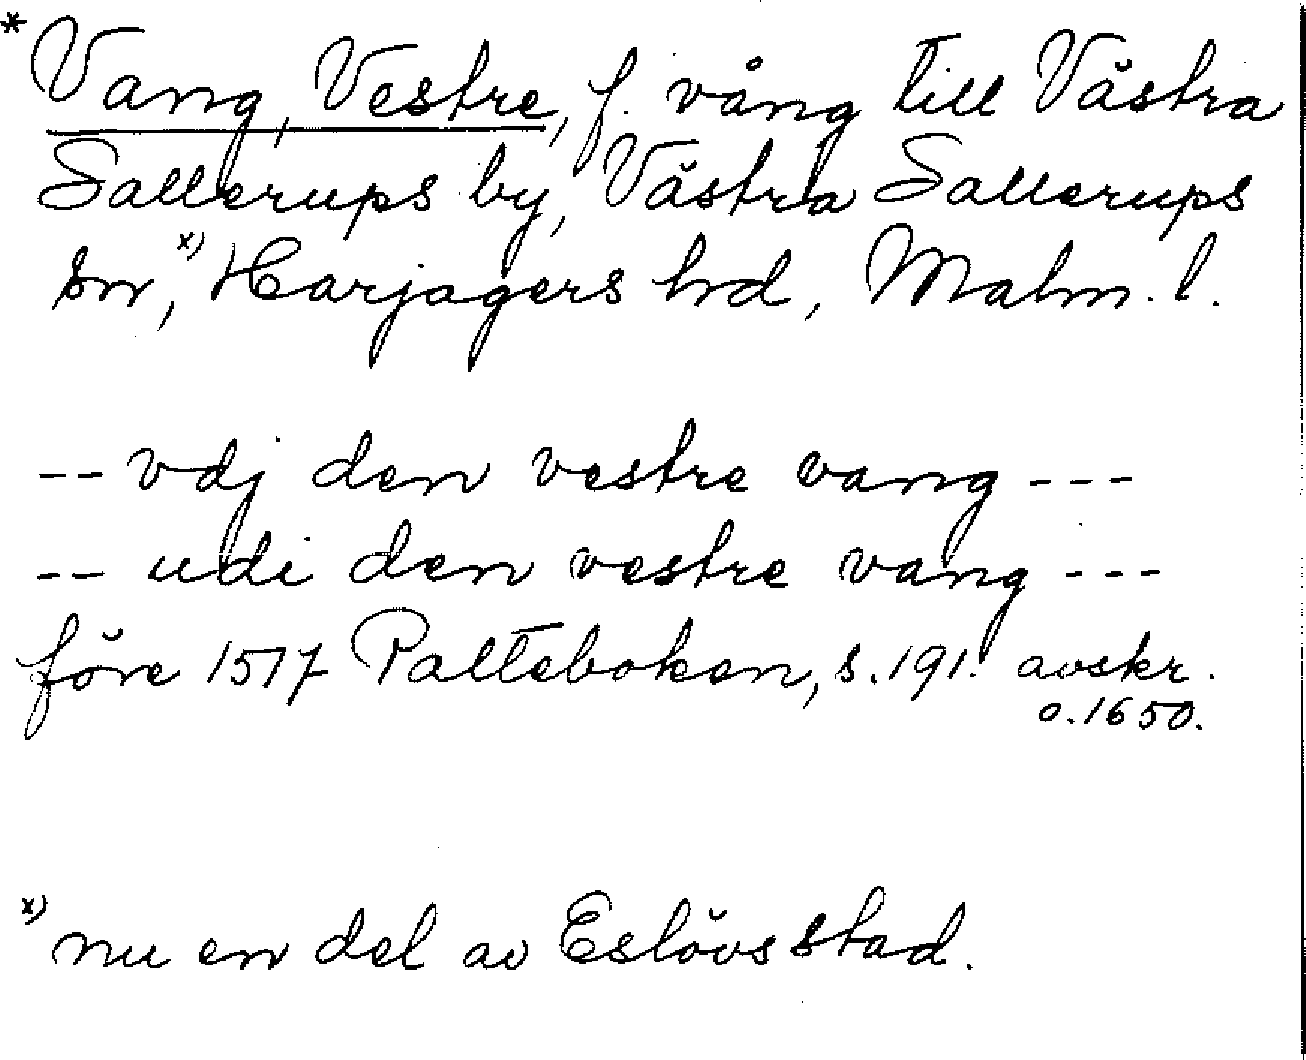 *Vang, Vestre, f. vång till Västra
Sallerups by, Västra Sallerups
sn,x) Harjagers hd, Malm. l.
-- vdj den vestre vang ---
-- udi den vestre vang ---
före 1517 Palteboken, s. 191. avskr.
o. 1650.
x) nu en del av Eslövs stad.